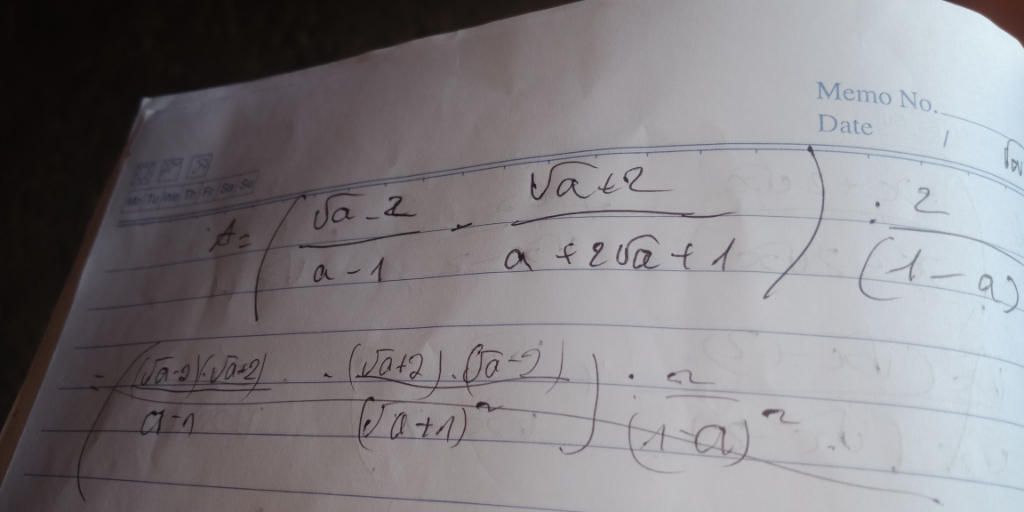 Memo No.
Date
Mo Tu We Th Fr Sa Su
A = ( (√a - 2)/(a - 1) - (√a + 2)/(a + 2√a + 1) ) : 2/(1 - a)
= ( (√a-2)(√a+2)/(a-1) - (√a+2).(√a-2)/(√a+1)² ) : 2/(1-a)²